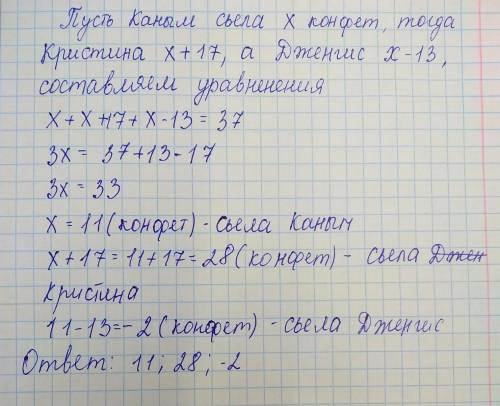 Пусть Каным сьела х конфет, тогда
Кристина х+17, а Дженгис х-13,
составляем уравненения
х+х+17+х-13=37
3х= 37+13-17
3х= 33
х=11(конфет)-сьела Каным
х+17=11+17=28(конфет)- сьела Джен
Кристина
11-13=-2(конфет)-сьела Дженгис
Ответ: 11; 28; -2